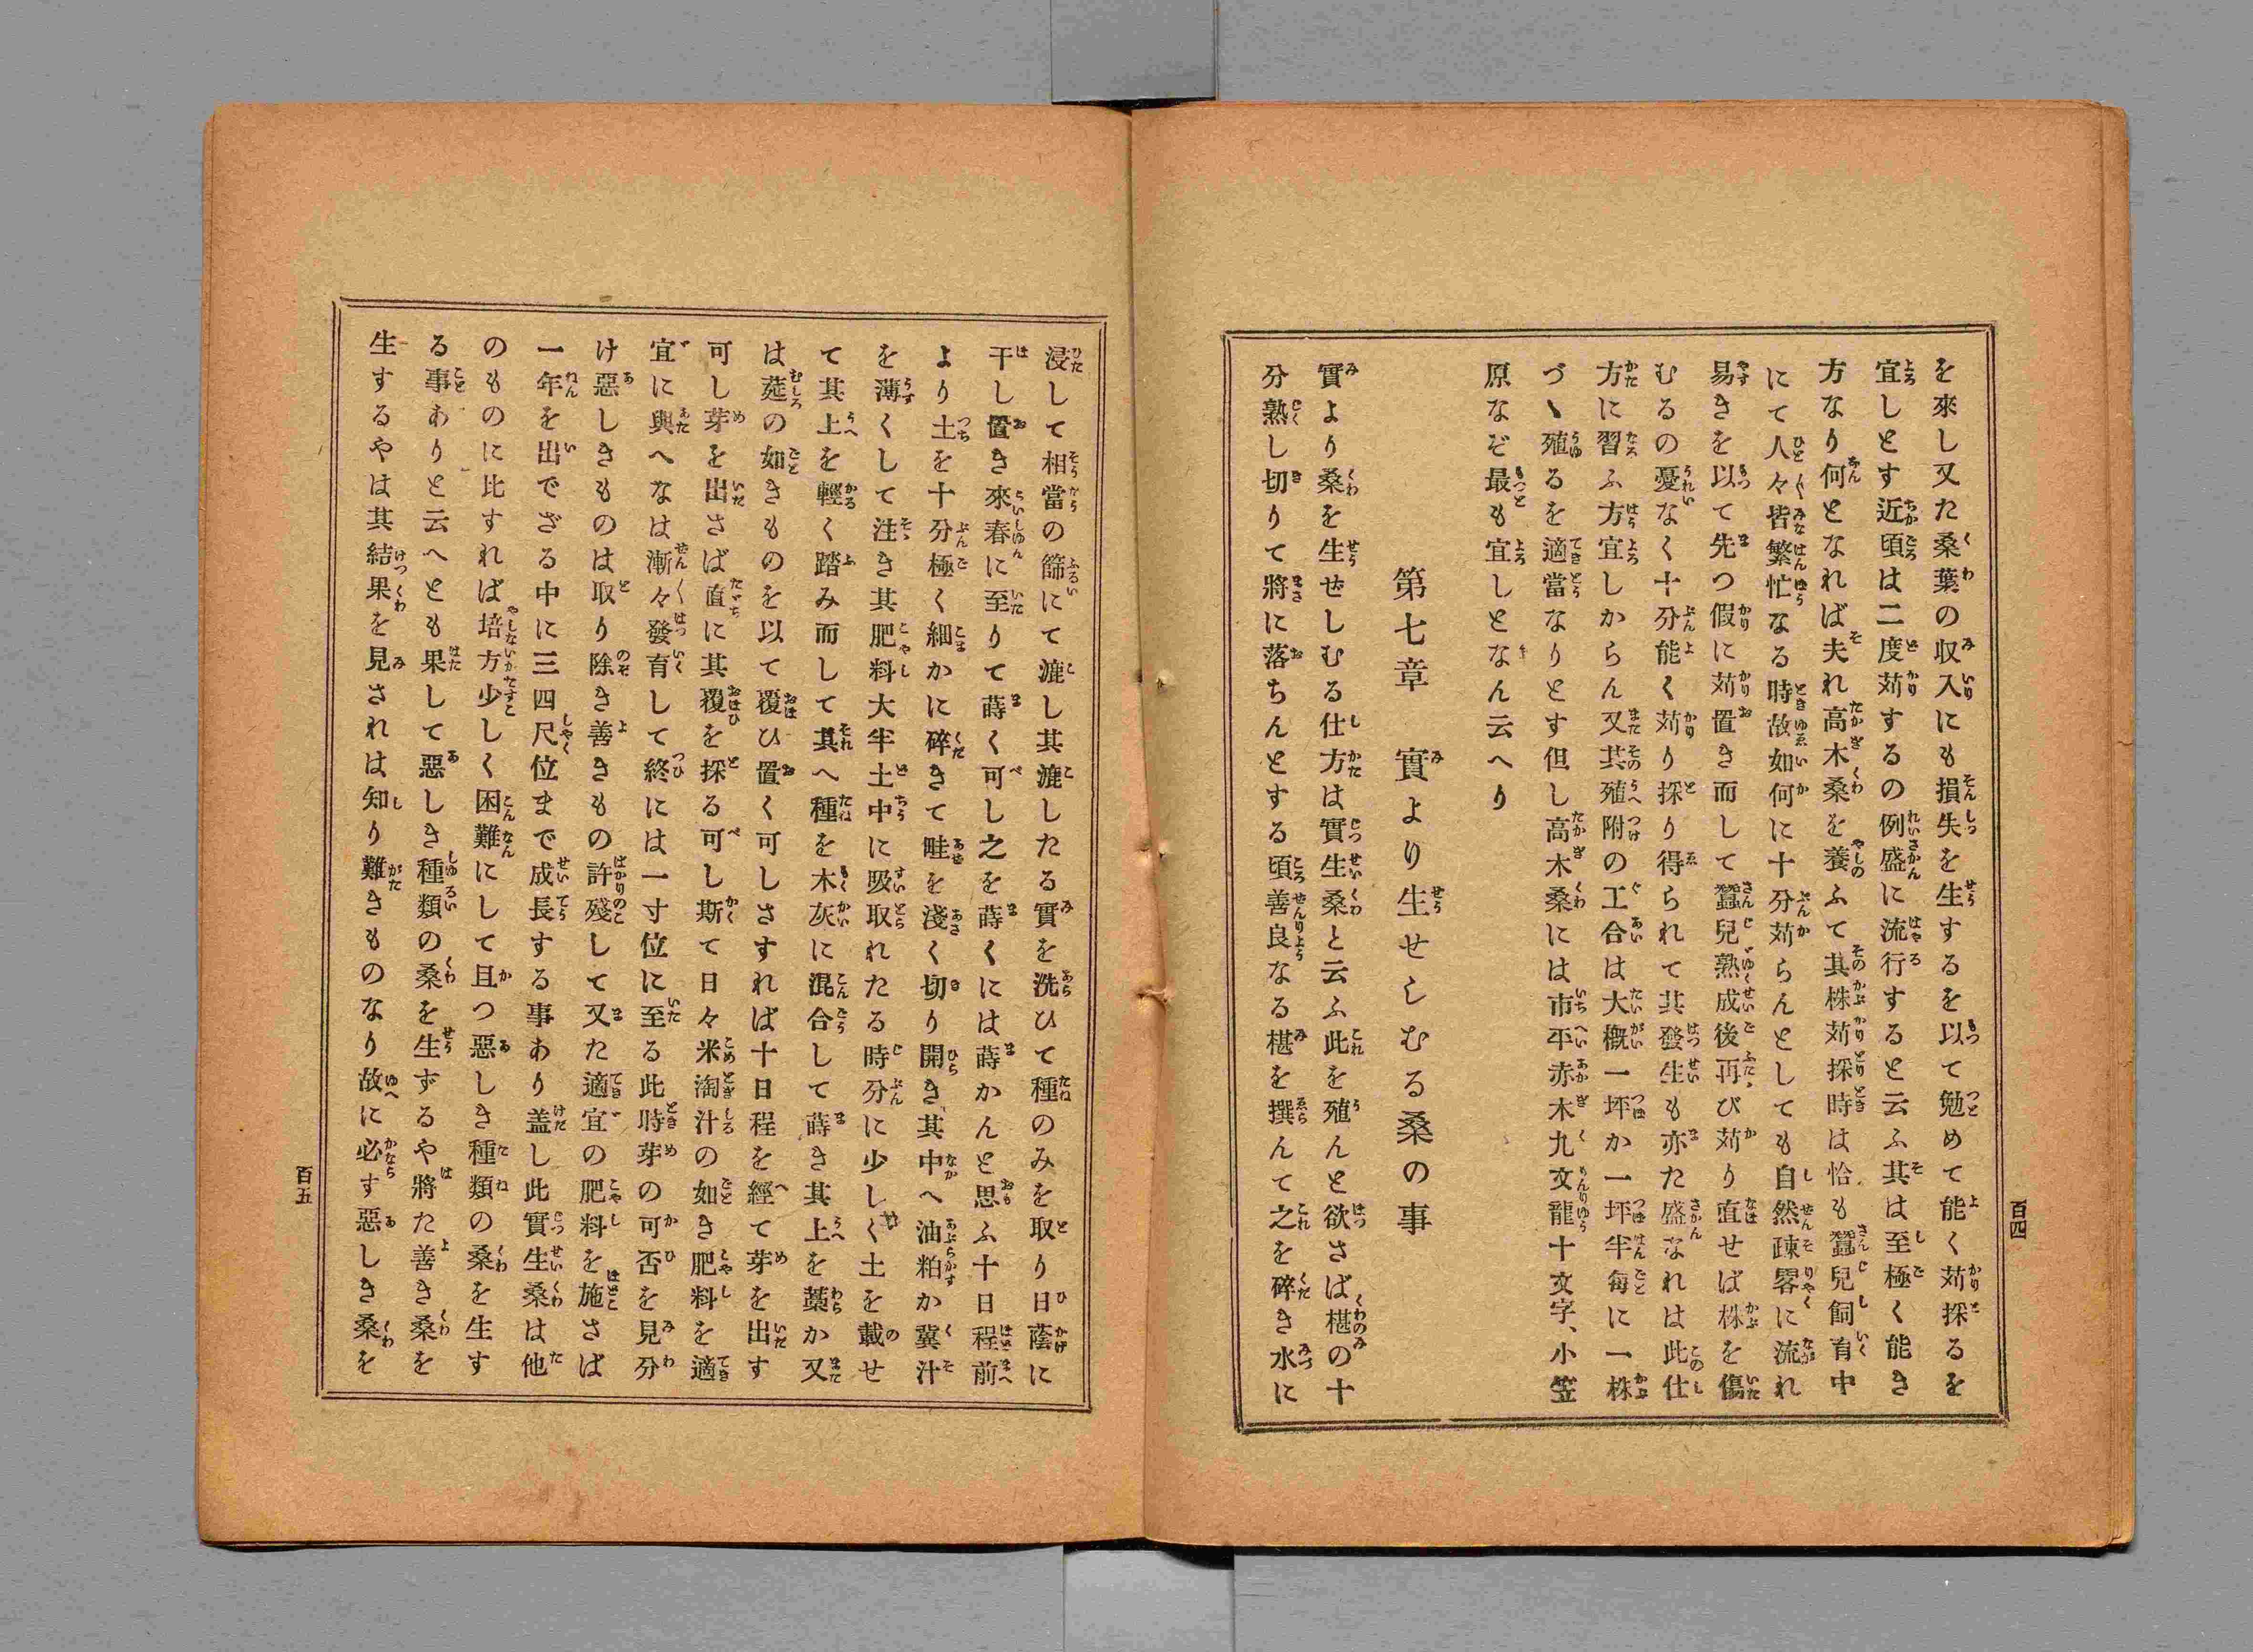 を來し又た桑葉の収入にも損失を生するを以て勉めて能く苅採るを
宜しとす近頃は二度苅するの例盛に流行すると云ふ其は至極く能き
方なり何となれば夫れ高木桑を養ふて其株苅採時は恰も蠶兒飼育中
にて人々皆繁忙なる時故如何に十分苅らんとしても自然踈畧に流れ
易きを以て先つ假に苅置き而して蠶兒熟成後再び苅り直せば株を傷
むるの憂なく十分能く苅り採り得られて其發生も亦た盛なれは此仕
方に習ふ方宜しからん又其殖附の工合は大概一坪か一坪半毎に一株
づゝ殖るを適當なりとす但し高木桑には市平赤木九文龍十文字、小笠
原なぞ最も宜しとなん云へり
第七章　實より生せしむる桑の事
實より桑を生ぜしむる仕方は實生桑と云ふ此を殖んと欲さば椹の十
分熟し切りて將に落ちんとする頃善良なる椹を撰んて之を碎き水に
百四
浸して相當の篩にて漉し其漉したる實を洗ひて種のみを取り日蔭に
干し置き來春に至りて蒔く可し之を蒔くには蒔かんと思ふ十日程前
より土を十分極く細かに碎きて畦を淺く切り開き其中へ油粕か糞汁
を薄くして注き其肥料大半土中に吸取れたる時分に少しく土を載せ
て其上を輕く踏み而して其へ種を木灰に混合して蒔き其上を藁か又
は莚の如きものを以て覆ひ置く可しさすれば十日程を經て芽を出す
可し芽を出さば直に其覆を採る可し斯て日々米淘汁の如き肥料を適
宜に與へなは漸々發育して終には一寸位に至る此時芽の可否を見分
け惡しきものは取り除き善きもの許殘して又た適宜の肥料を施さば
一年を出でざる中に三四尺位まで成長する事あり盖し此實生桑は他
のものに比すれば培方少しく困難にして且つ惡しき種類の桑を生す
る事ありと云へとも果して惡しき種類の桑を生ずるや將た善き桑を
生するやは其結果を見されは知り難きものなり故に必す惡しき桑を
百五